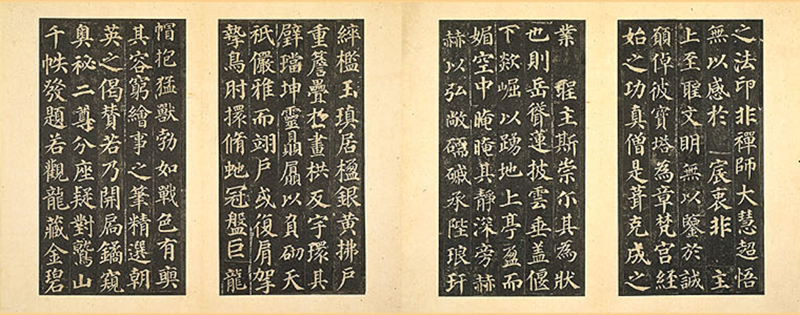 之法印非禪師大慧超悟
無以感於 宸衷非 主
上至聖文明無以鑒於誠
願倬彼寶塔為章梵宮經
始之功真僧是葺克成之
業 聖主斯崇尒其為狀
也則岳聳蓮披雲垂蓋偃
下欻崛以踊地上亭盈而
媚空中晻晻其靜深旁赫
赫以弘敞礝磩承陛琅玕
綷檻玉瑱居楹銀黃拂戶
重簷疊於畫栱反宇環其
壁璫坤靈贔屭以負砌天
祇儼雅而翊戶或復肩挐
摯鳥肘擐脩虵冠盤巨龍
帽抱猛獸勃如戰色有奭
其容窮繪事之筆精選朝
英之偈贊若乃開扃鐍窺
奧秘二尊分座疑對鷲山
千帙發題若觀龍藏金碧